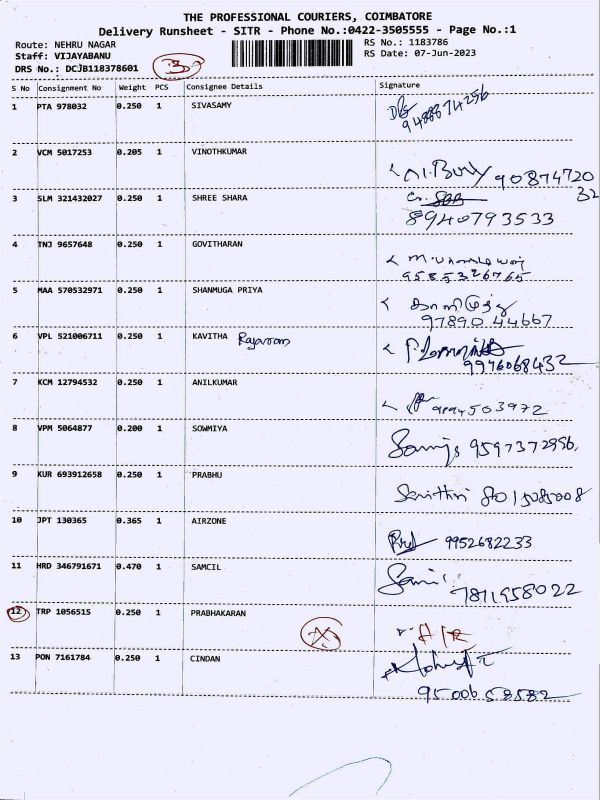 THE PROFESSIONAL COURIERS, COIMBATORE
Delivery Runsheet - SITR - Phone No.:0422-3505555 - Page No.:1
Route: NEHRU NAGAR RS No.: 1183786
Staff: VIJAYABANU RS Date: 07-Jun-2023
DRS No.: DCJB118378601 3
S No Consignment No Weight PCS Consignee Details Signature
1 PTA 978032 0.250 1 SIVASAMY
9488874256
2 VCM 5017253 0.205 1 VINOTHKUMAR
90874720
32
3 SLM 321432027 0.250 1 SHREE SHARA
8940793533
4 TNJ 9657648 0.250 1 GOVITHARAN
9585326765
5 MAA 570532971 0.250 1 SHANMUGA PRIYA
97890 44667
6 VPL 521006711 0.250 1 KAVITHA Rajaram
9976068432
7 KCM 12794532 0.250 1 ANILKUMAR
9894503972
8 VPM 5064877 0.200 1 SOWMIYA
9597372956
9 KUR 693912658 0.250 1 PRABHU
Savithri 8015085008
10 JPT 130365 0.365 1 AIRZONE
9952682233
11 HRD 346791671 0.470 1 SAMCIL
7811958022
12 TRP 1056515 0.250 1 PRABHAKARAN
13 PON 7161784 0.250 1 CINDAN
9500658582